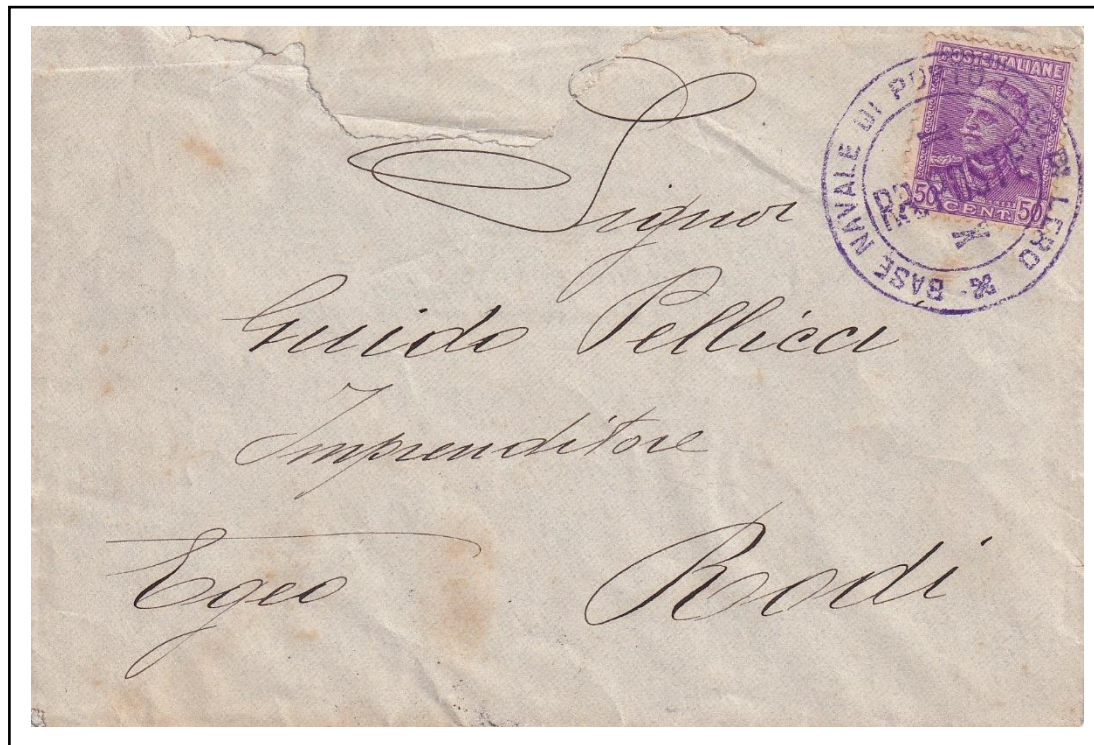 POSTE ITALIANE
50 CENT 50
BASE NAVALE DI PORTO LAGO DI LERO
RR. POSTE
Signor
Guido Pellicci
Imprenditore
Egeo Rodi